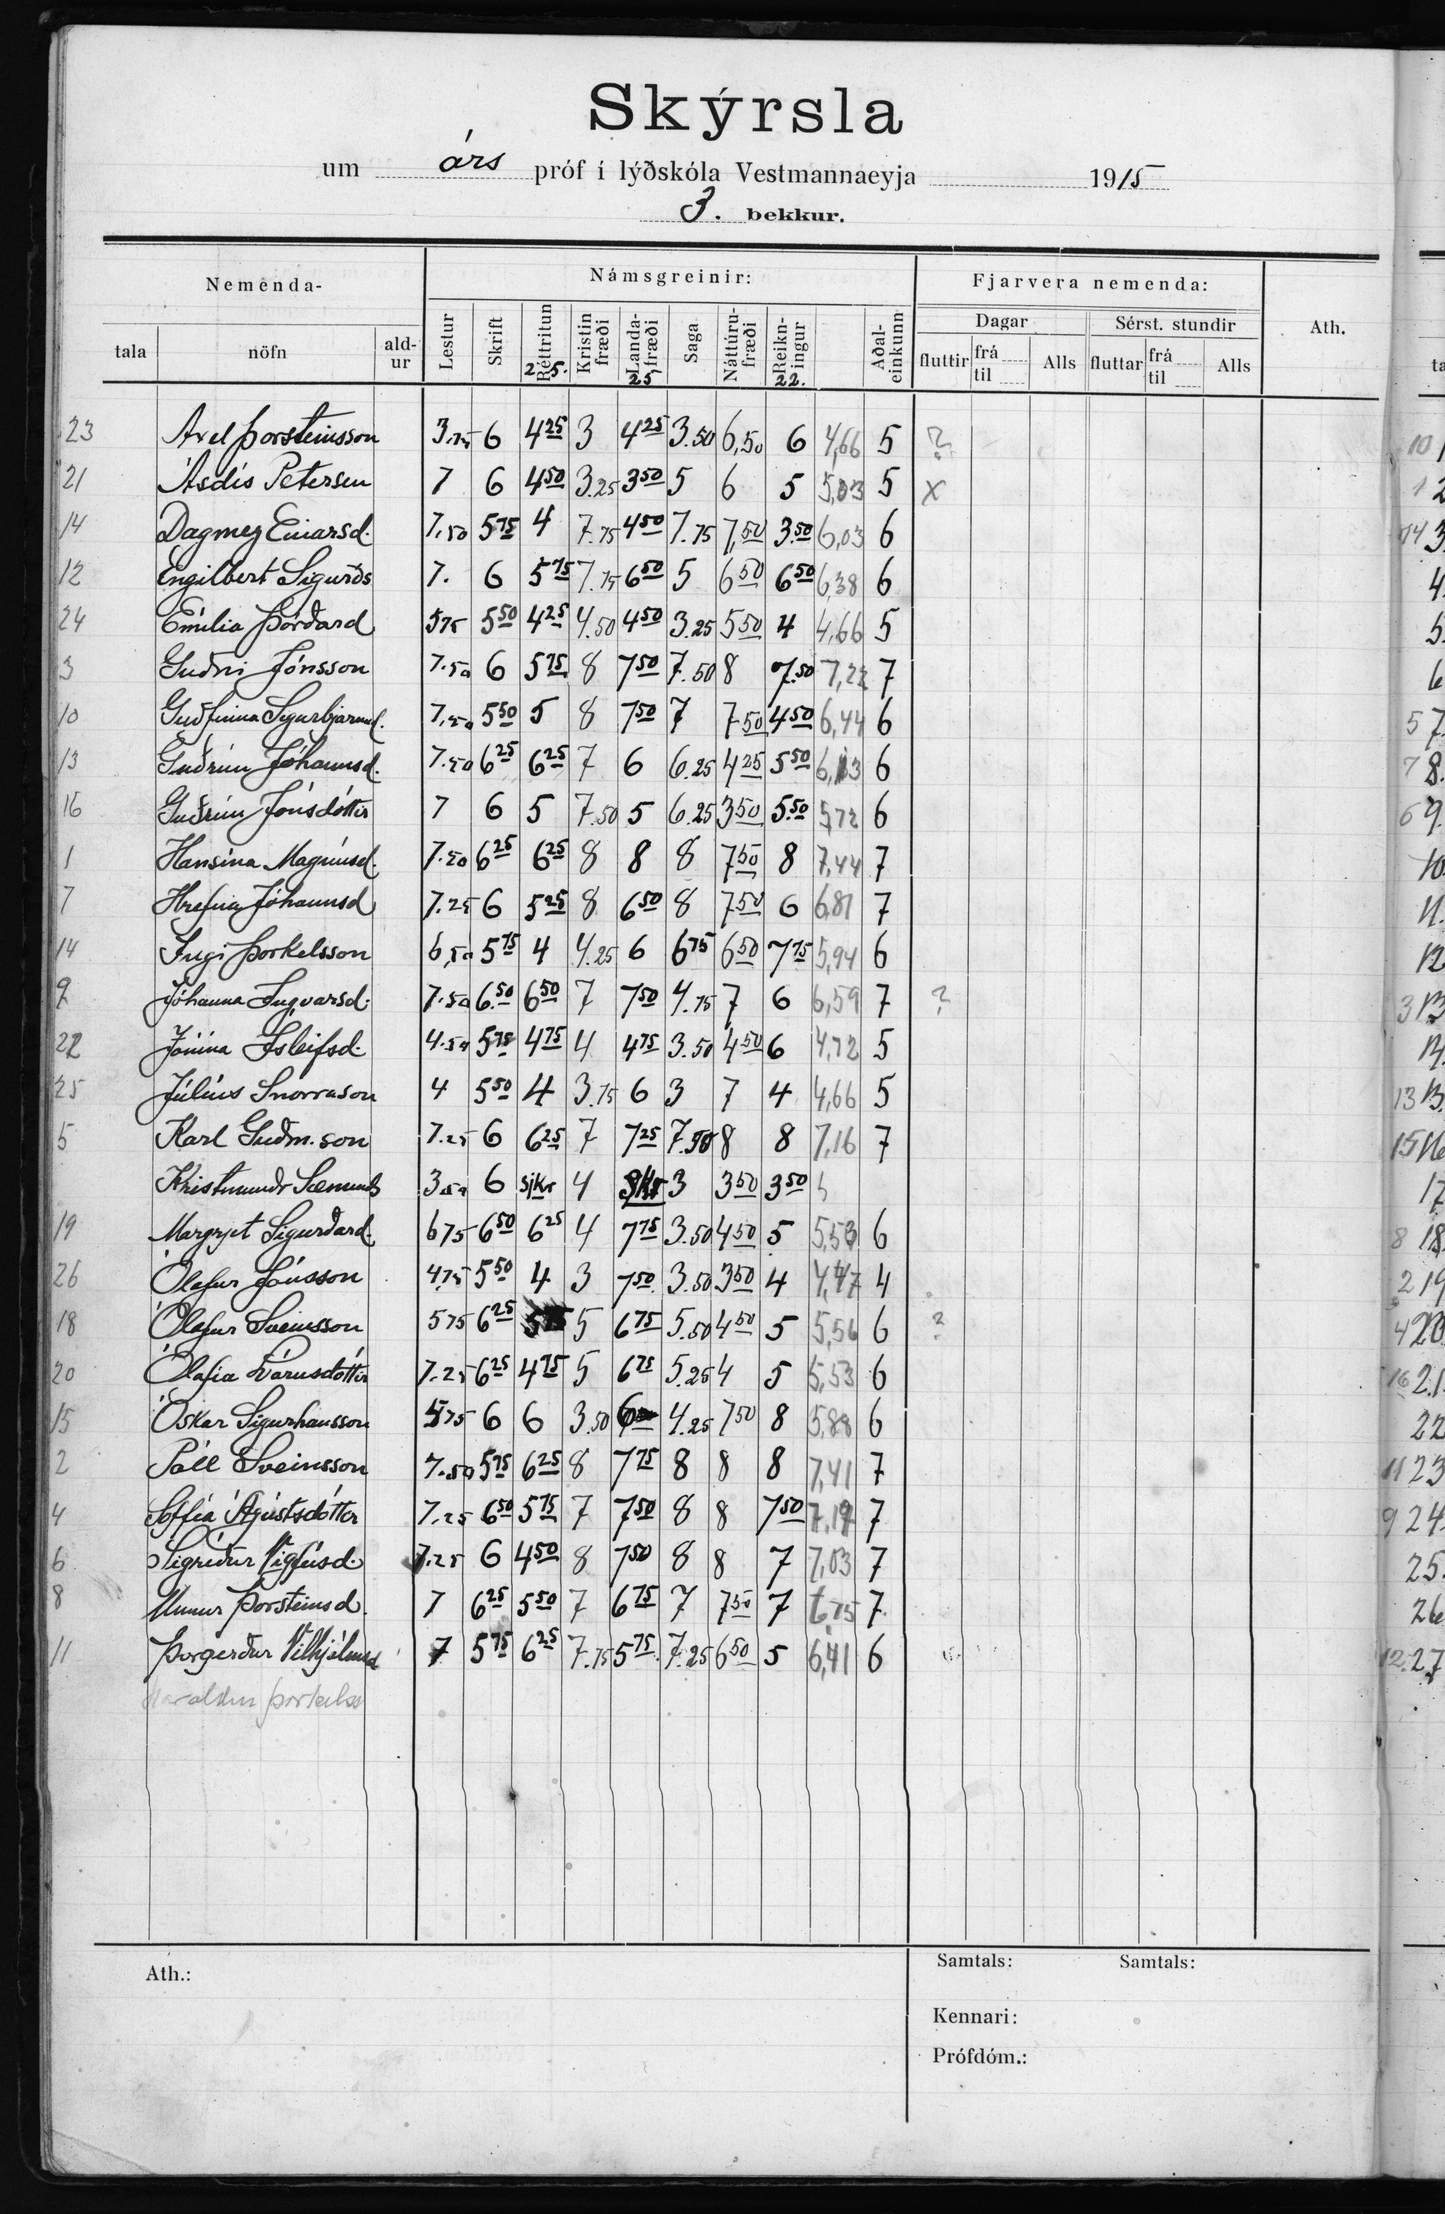 Skýrsla
um árs próf í lýðskóla Vestmannaeyja 1915
3. bekkur.
Nemenda- Námsgreinir: Fjarvera nemenda: Ath.
tala nöfn ald-ur Lestur Skrift Réttritun Kristin fræði Landa-fræði Saga Náttúru-fræði Reikn-ingur Aðal-einkunn Dagar Sérst. stundir
fluttir frá til Alls fluttar frá til Alls
25. 25 22.
23 Axel Þorsteinsson 3.75 6 4 25 3 4 25 3.50 6,50 6 4,66 5 ?
21 Ásdís Petersen 7 6 4 50 3.25 3 50 5 6 5 5,03 5 x
14 Dagmey Einarsd. 7.50 5 75 4 7.75 4 50 7.75 7,50 3.50 6,03 6
12 Engilbert Sigurðs 7. 6 5 75 7.75 6 50 5 6 50 6 50 6,38 6
24 Emilia Þórðard 5 75 5 50 4 25 4.50 4 50 3.25 5 50 4 4,66 5
3 Guðni Jónsson 7.50 6 5 75 8 7 50 7.50 8 7.50 7,22 7
10 Guðfinna Sigurbjarnad. 7.50 5 50 5 8 7 50 7 7 50 4 50 6,44 6
13 Guðrún Jóhannsd. 7.50 6 25 6 25 7 6 6.25 4 25 5 50 6,13 6
16 Guðrún Jónsdóttir 7 6 5 7.50 5 6.25 3 50 5.50 5,72 6
1 Hansína Magnúsd. 7.50 6 25 6 25 8 8 8 7 50 8 7,44 7
7 Hrefna Jóhannsd 7.25 6 5 25 8 6 50 8 7 50 6 6,81 7
14 Ingi Þorkelsson 6,50 5 75 4 4.25 6 6 75 6 50 7 75 5,94 6
9 Jóhanna Ingvarsd. 7.50 6.50 6 50 7 7 50 4.75 7 6 6,59 7 ?
22 Jónína Ísleifsd. 4.50 5 75 4 75 4 4 75 3.50 4 50 6 4,72 5
25 Júlíus Snorrason 4 5 50 4 3.75 6 3 7 4 4,66 5
5 Karl Guðm.son 7.25 6 6 25 7 7 25 7.50 8 8 7,16 7
Kristmundr Sæmunds 3.50 6 sjkr 4 3 3 50 3 50
19 Margrjet Sigurðard. 6 75 6 50 6 25 4 7 75 3.50 4 50 5 5,53 6
26 Ólafur Jónsson 4 75 5 50 4 3 7 50. 3.50 3 50 4 4,47 4
18 Ólafur Sveinsson 5 75 6 25 5 6 75 5.50 4 50 5 5,56 6 ?
20 Ólafía Lárusdóttir 7.25 6 25 4 75 5 6 75 5.25 4 5 5,53 6
15 Óskar Sigurhansson 5 75 6 6 3.50 6 4.25 7 50 8 5,88 6
2 Páll Sveinsson 7.50 5 75 6 25 8 7 75 8 8 8 7,41 7
4 Soffía Ágústsdóttir 7.25 6 50 5 75 7 7 50 8 8 7 50 7,19 7
6 Sigríður Vigfúsd. 7.25 6 4 50 8 7 50 8 8 7 7,03 7
8 Unnur Þorsteinsd. 7 6 25 5 50 7 6 75 7 7 50 7 6,75 7
11 Þorgerður Vilhjálmsd 7 5 75 6 25 7.75 5 75 7.25 6 50 5 6,41 6
Haraldur Þorkelss
Ath.: Samtals: Samtals:
Kennari:
Prófdóm.: